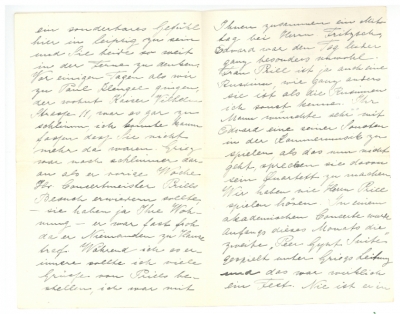 ein sonderbares Gefühl
hier in Leipzig zu sein
und Sie beide so weit
in der Ferne zu denken.
Vor einigen Tagen als wir
zu Paul Klengel gingen,
der wohnt Kaiser Wilhelm
Strasse 11, war es gar zu
schlimm, ich konnte kaum
fassen dass Sie nicht
mehr da waren. Grieg
war noch schlimmer dar-
an als er vorige Woche
Ihr Concertmeister Prills
Besuch erwiedern wollte,
– sie haben ja Ihre Woh-
nung – er war fast froh
da er Niemanden zu Hause
traf. Während ich es er-
innere sollte ich viele
Grüsse von Prills be-
stellen, ich war mit
Ihnen zusammen ein Mit-
tag bei Herrn Fritzsch,
Edvard war den Tag leider
ganz besonders unwohl.
Frau Prill ist ja auch eine
Pianistin, wie ganz anders
sie ist als die Pianistinnen
ich sonst kenne. Ihr
Mann wünschte sehr mit
Edvard eine seiner Sonaten
in der Kammermusik zu
spielen als das nun nicht
geht sprechen sie davon
sein Quartett zu machen.
Wir haben nie Herrn Prill
spielen hören. In einem
akademischen Concerte wurde
Anfangs dieses Monats die
zweite, Peer Gynt Suite
gespielt unter Griegs Leitung
und das war wirklich
ein Fest. Nie ist er in